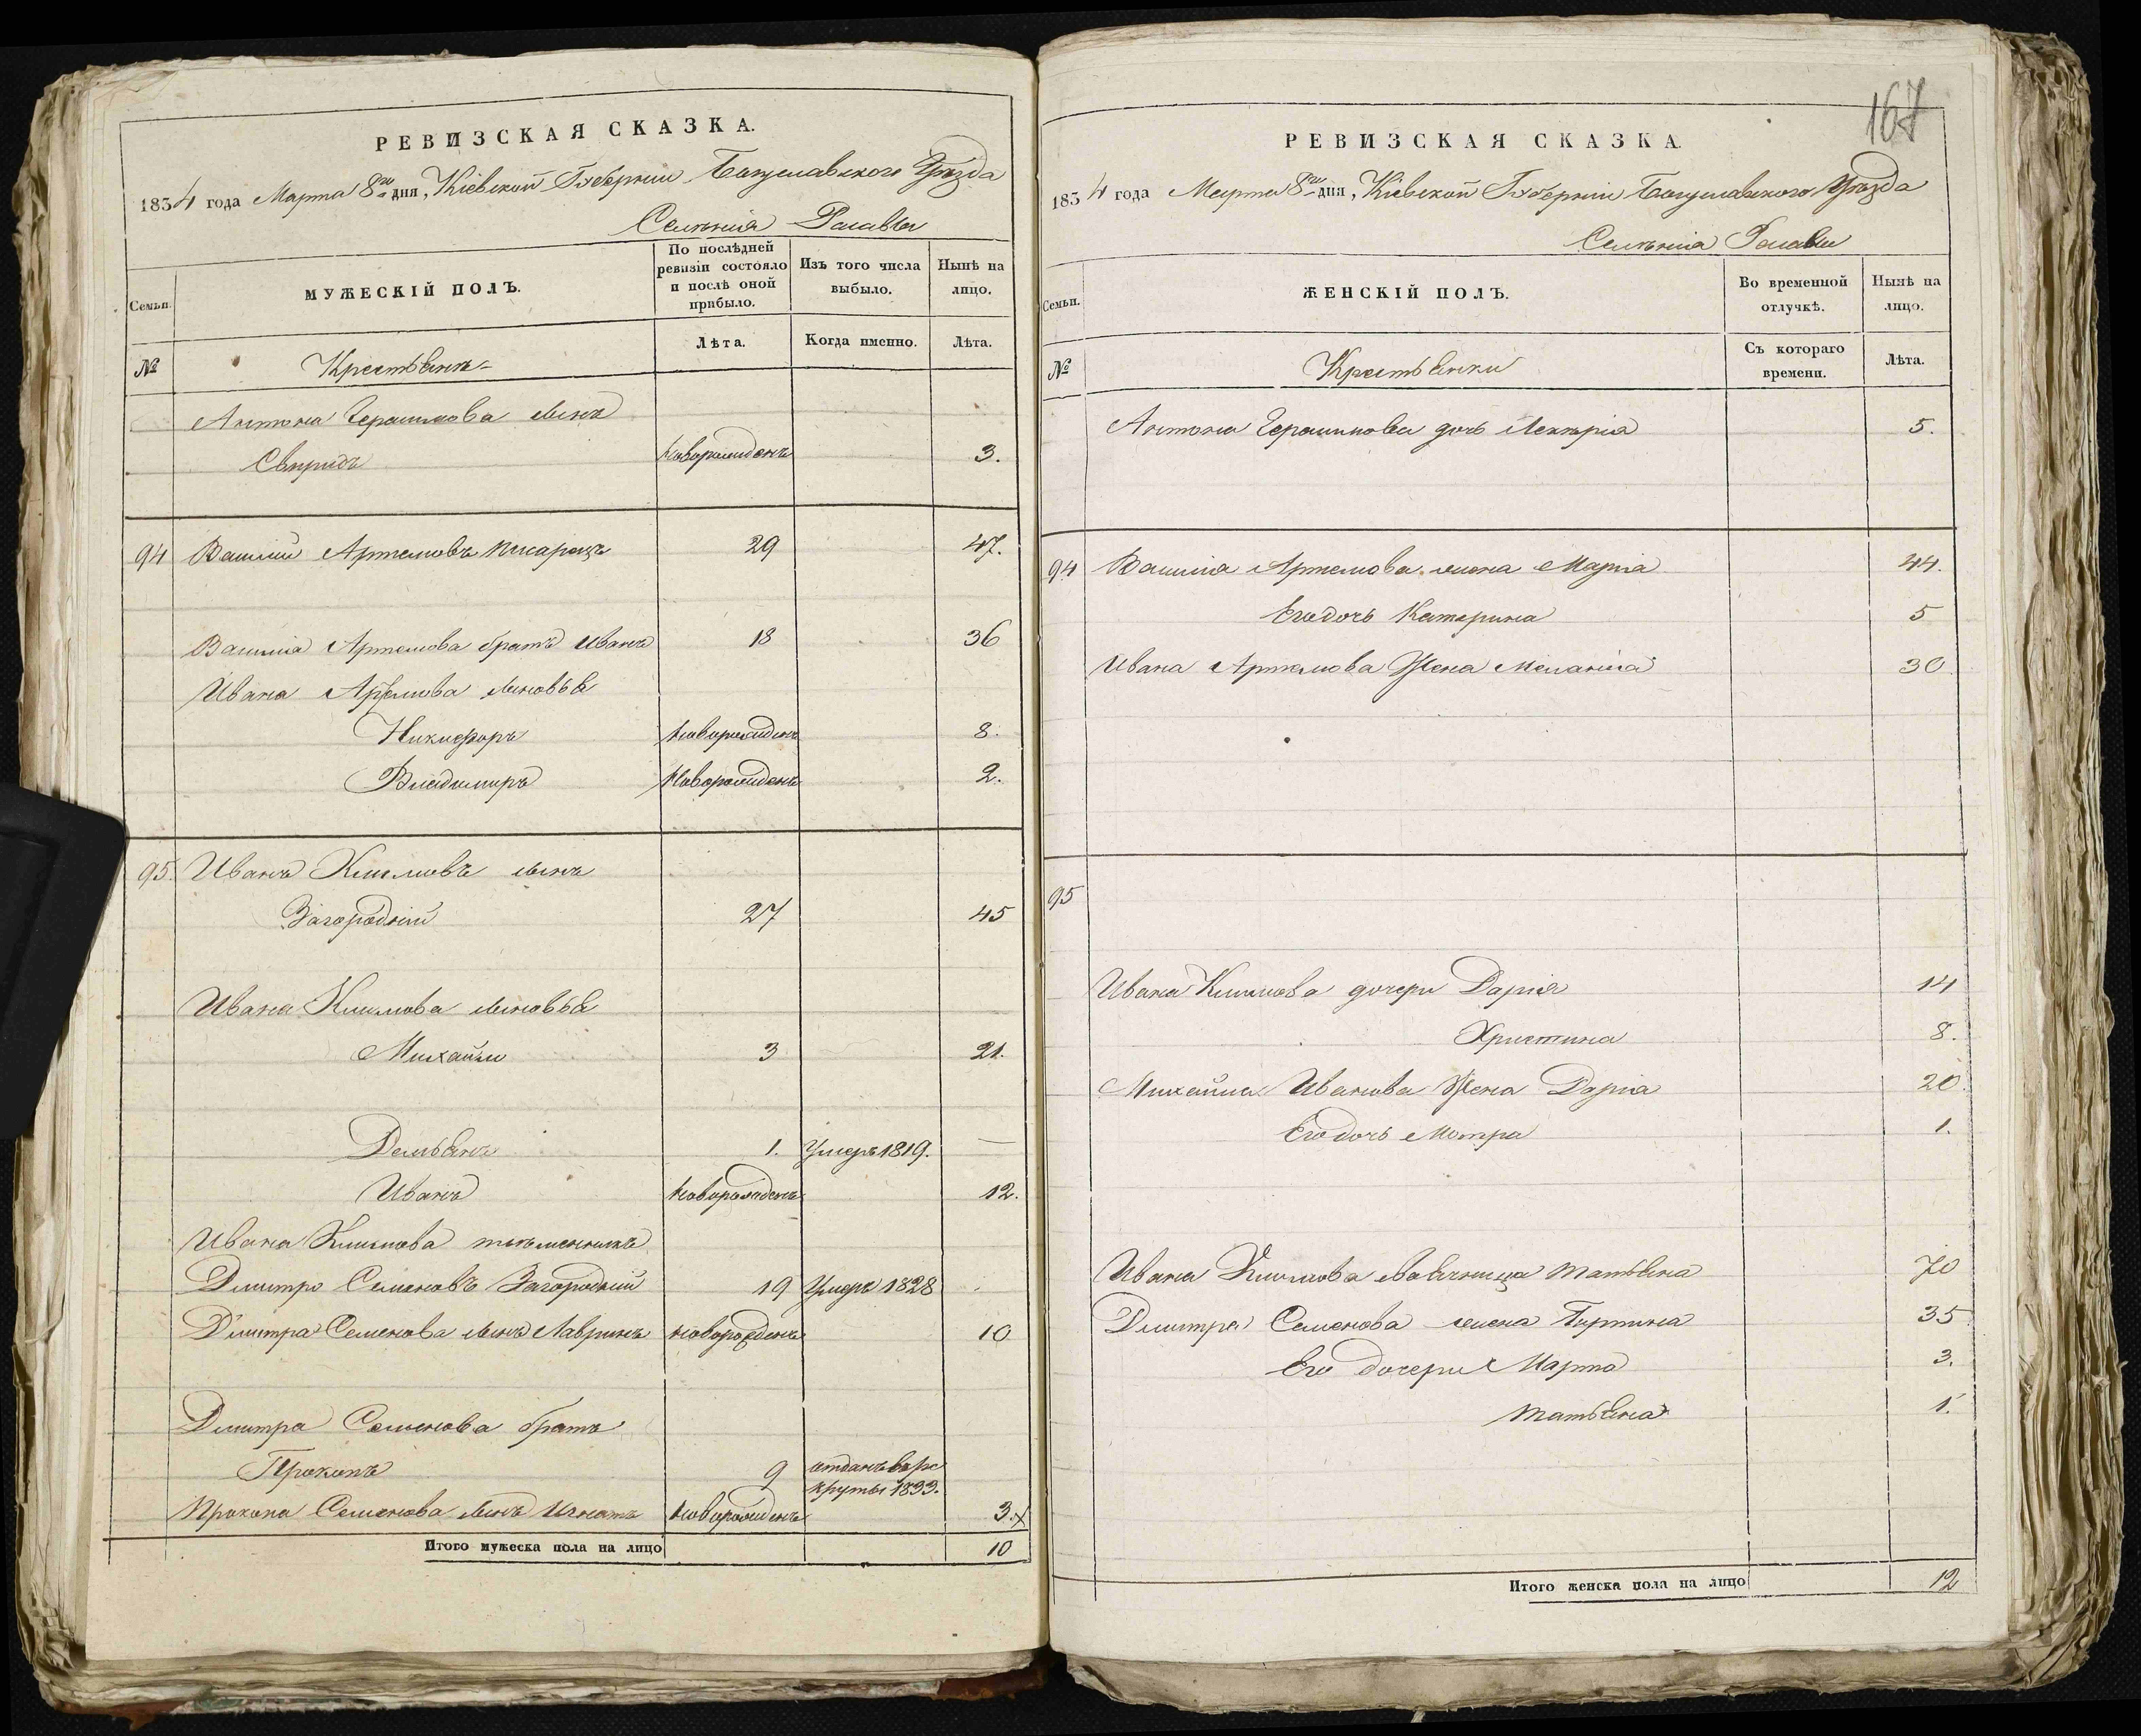 РЕВИЗСКАЯ СКАЗКА.
1834 года Марта 8го дня, Кіевской Губерніи Богуславского Уѣзда
Селенія Росавы
Семьи.
МУЖЕСКІЙ ПОЛЪ.
По послѣдней ревизіи состояло и послѣ оной прибыло.
Изъ того числа выбыло.
Нынѣ на лицо.
№
Крестьянъ
Лѣта.
Когда именно.
Лѣта.
Антона Герасимова сынъ
Свиридъ новорожденъ 3.
94 Василій Артемовъ Писарецъ 29 47.
Василія Артемова братъ Иванъ 18 36
Ивана Артемова сыновья
Никифоръ новорожденъ 8.
Владимиръ новорожденъ 2.
95. Иванъ Климовъ сынъ
Загородній 27 45
Ивана Климова сыновья
Михайло 3 21.
Демьянъ 1. Умеръ 1819. —
Иванъ новорожденъ 12.
Ивана Климова племенникъ
Дмитро Семеновъ Загородній 19 Умеръ 1828
Дмитра Семенова сынъ Лавринъ новорожденъ 10
Дмитра Семенова братъ
Прокопъ 9 отданъ въ ре
круты 1833.
Прокопа Семенова сынъ Игнатъ новорожденъ 3.x
Итого мужеска пола на лицо 10
167
РЕВИЗСКАЯ СКАЗКА.
1834 года Марта 8го дня, Кіевской Губерніи Богуславского Уѣзда
Селенія Росавы
Семьи.
ЖЕНСКІЙ ПОЛЪ.
Во временной отлучкѣ.
Нынѣ на лицо.
№
Крестьянки
Съ котораго времени.
Лѣта.
Антона Герасимова дочь Лекерія 5.
94 Василія Артемова жена Марія 44.
Его дочь Катерина 5
Ивана Артемова Жена Меланія 30
95
Ивана Климова дочери Дарія 14
Христина 8.
Михайла Иванова Жена Дарія 20.
Его дочь Мотра 1.
Ивана Климова Татьяна 70
Дмитра Семенова жена 35
Его дочери Марта 3.
Татьяна 1.
Итого женска пола на лицо 12